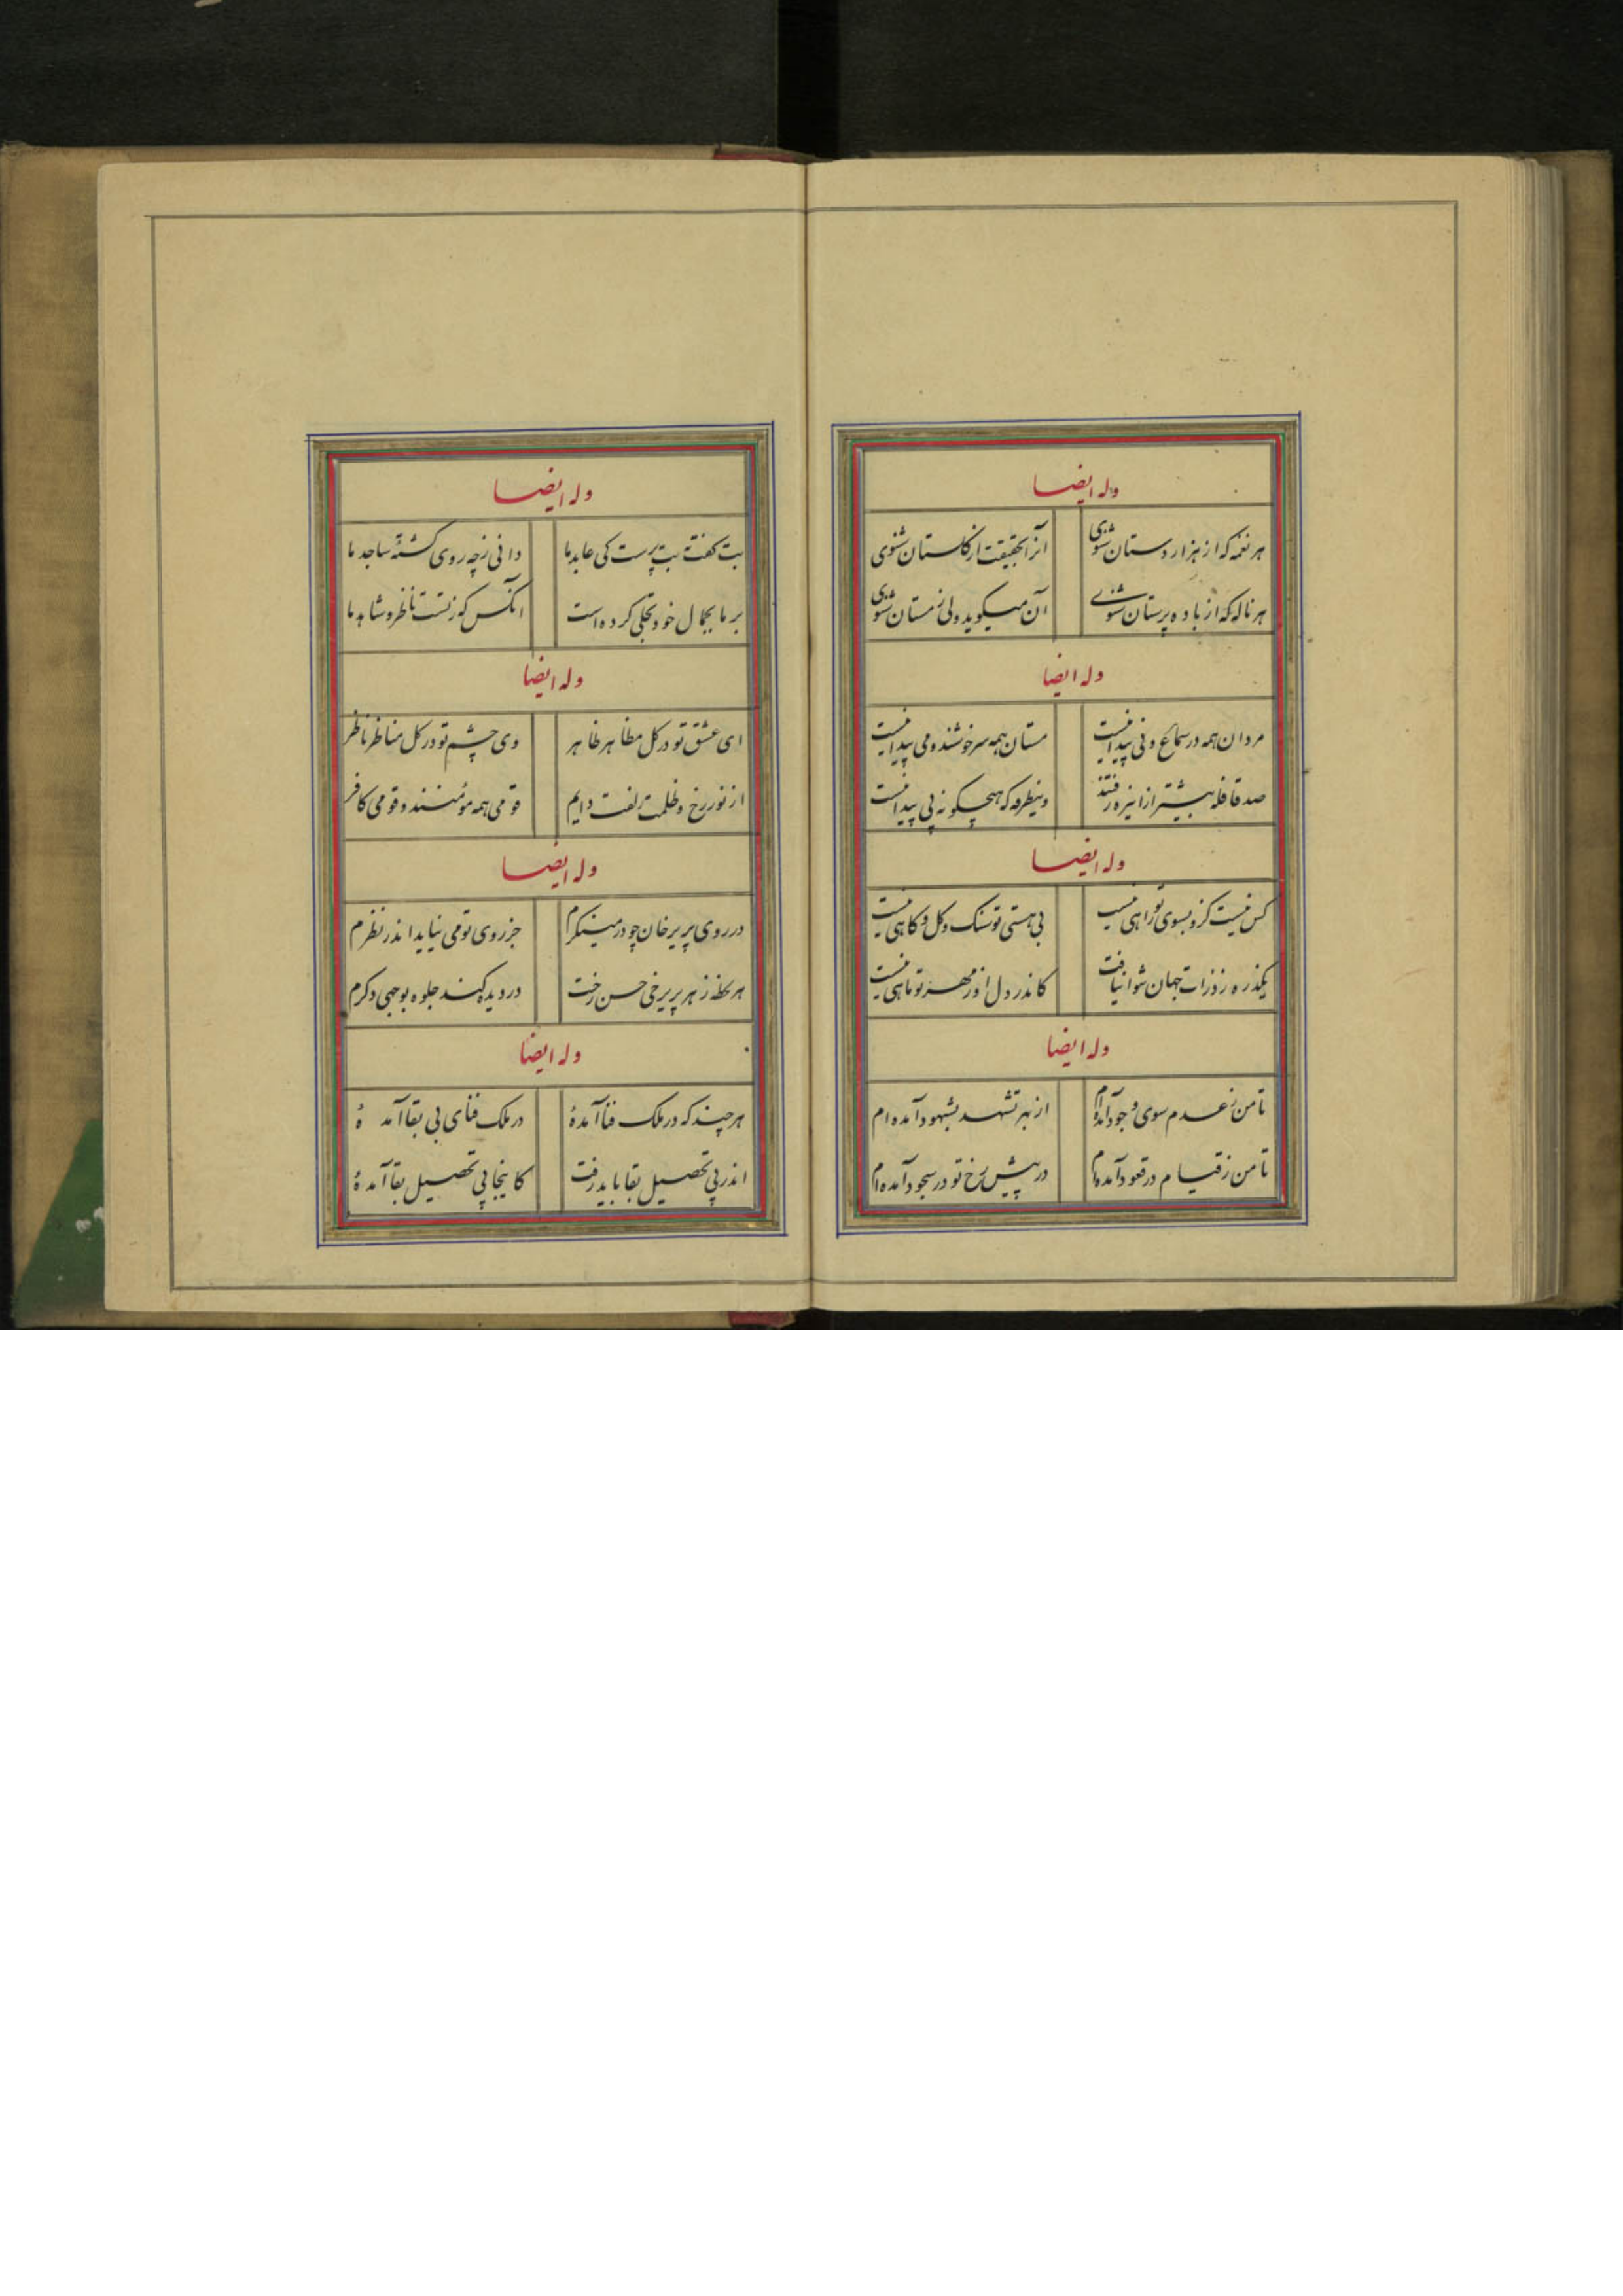 وله ایضا
هر نغمه که از هزار دستان شنوی
انرا بحقیقت از کلستان شنوی
هر ناله که از باده پرستان شنوی
آن میکوید ولی ز مستان شنوی
وله ایضا
مردان همه در سماع و نی پیدا نیست
مستان همه سر خوشند و می پیدا نیست
صد قافله بیشتر ازاینره رفتند
وینطرفه که هیچکونه پی پیدا نیست
وله ایضا
کس نیست کزو بسوی تو راهی نیست
بی هستی تو سنک و کل و کاهی نیست
یکذره ز ذرات جهان نتوان یافت
کاندر دل او ز مهر تو ماهی نیست
وله ایضا
تا من ز عدم سوی وجود آمده‌ام
از بهر تشهد بشهود آمده ام
تا من ز قیام در قعود آمده‌ام
در پیش رخ تو در سجود آمده ام
وله ایضا
بت کفت به بت پرست کی عابد ما
دانی ز چه روی کشتهٔ ساجد ما
بر ما بجمال خود تجلی کرده است
انکس که ز تست ناظر و شاهد ما
وله ایضا
ای عشق تو در کل مظاهر ظاهر
وی چشم تو در کل مناظر ناظر
از نور رخ و ظلمت زلفت دایم
قومی همه مؤمنند و قومی کافر
وله ایضا
در روی پریرخان چو در مینکرم
جز روی تو می نیاید اندر نظرم
هر لحظه ز هر پریرخی حسن رخت
در دیده کند جلوه بوجهی دکرم
وله ایضا
هر چند که در ملک فنا آمدهٔ
در ملک فنای بی بقا آمدهٔ
اندر پی تحصیل بقا باید رفت
کاینجا پی تحصیل بقا آمدهٔ